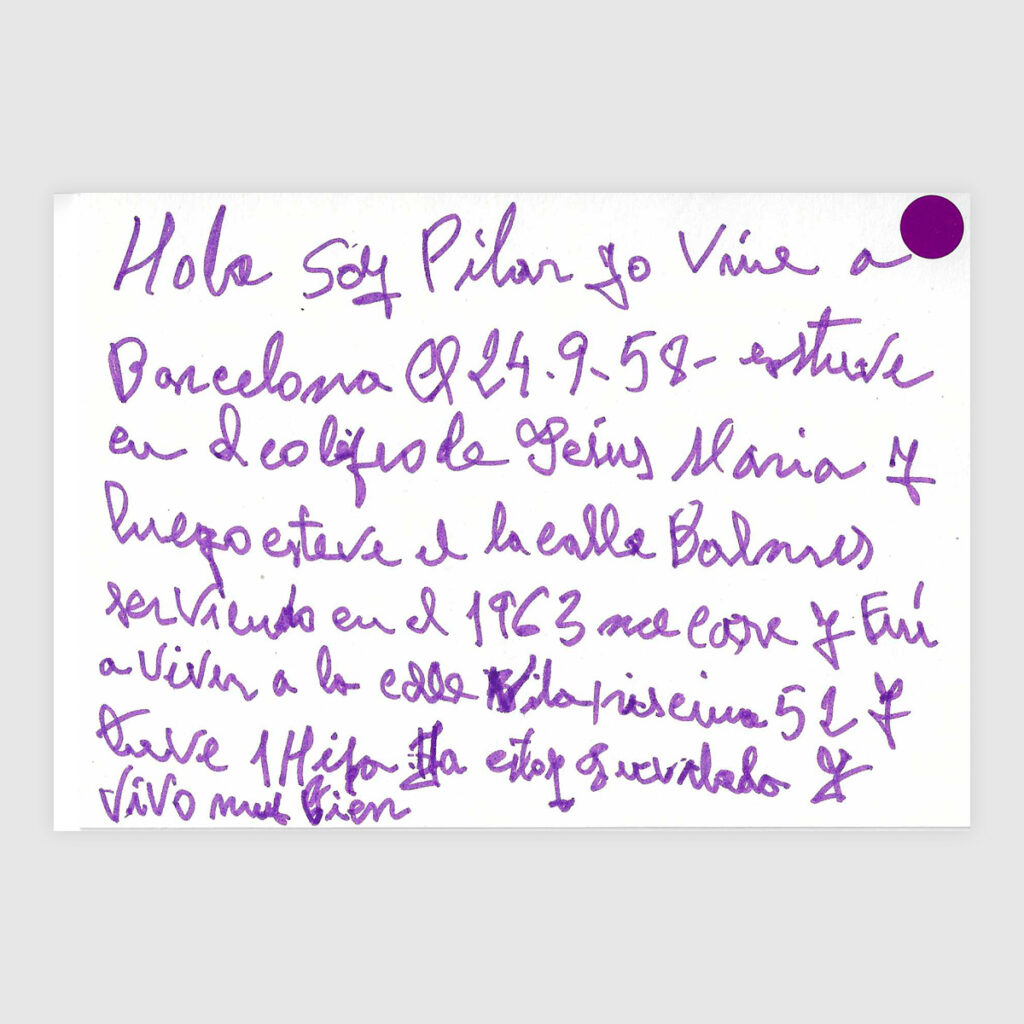 Hola soy Pilar yo vine a
Barcelona El 24.9-58- estuve
en el colejio de Jesús Maria y
luego esteve el la calle Balmes
serviendo en el 1963 me case y Fuí
a vivir a la calle Vilapiscina 52 y
tuve 1 Hija Ya estoy y
vivo mui bien